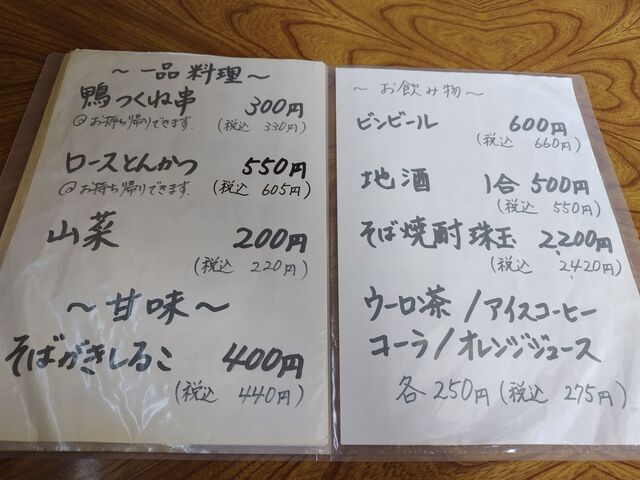 ～一品料理～
鴨つくね串 300円
@お持ち帰りできます。 (税込 330円)
ロースとんかつ 550円
@お持ち帰りできます。 (税込 605円)
山菜 200円
(税込 220円)
～甘味～
そばがきしるこ 400円
(税込 440円)
～お飲み物～
ビンビール 600円
(税込 660円)
地酒 1合 500円
(税込 550円)
そば焼酎 珠玉 2,200円
(税込 2,420円)
ウーロン茶 / アイスコーヒー
コーラ / オレンジジュース
各 250円 (税込 275円)